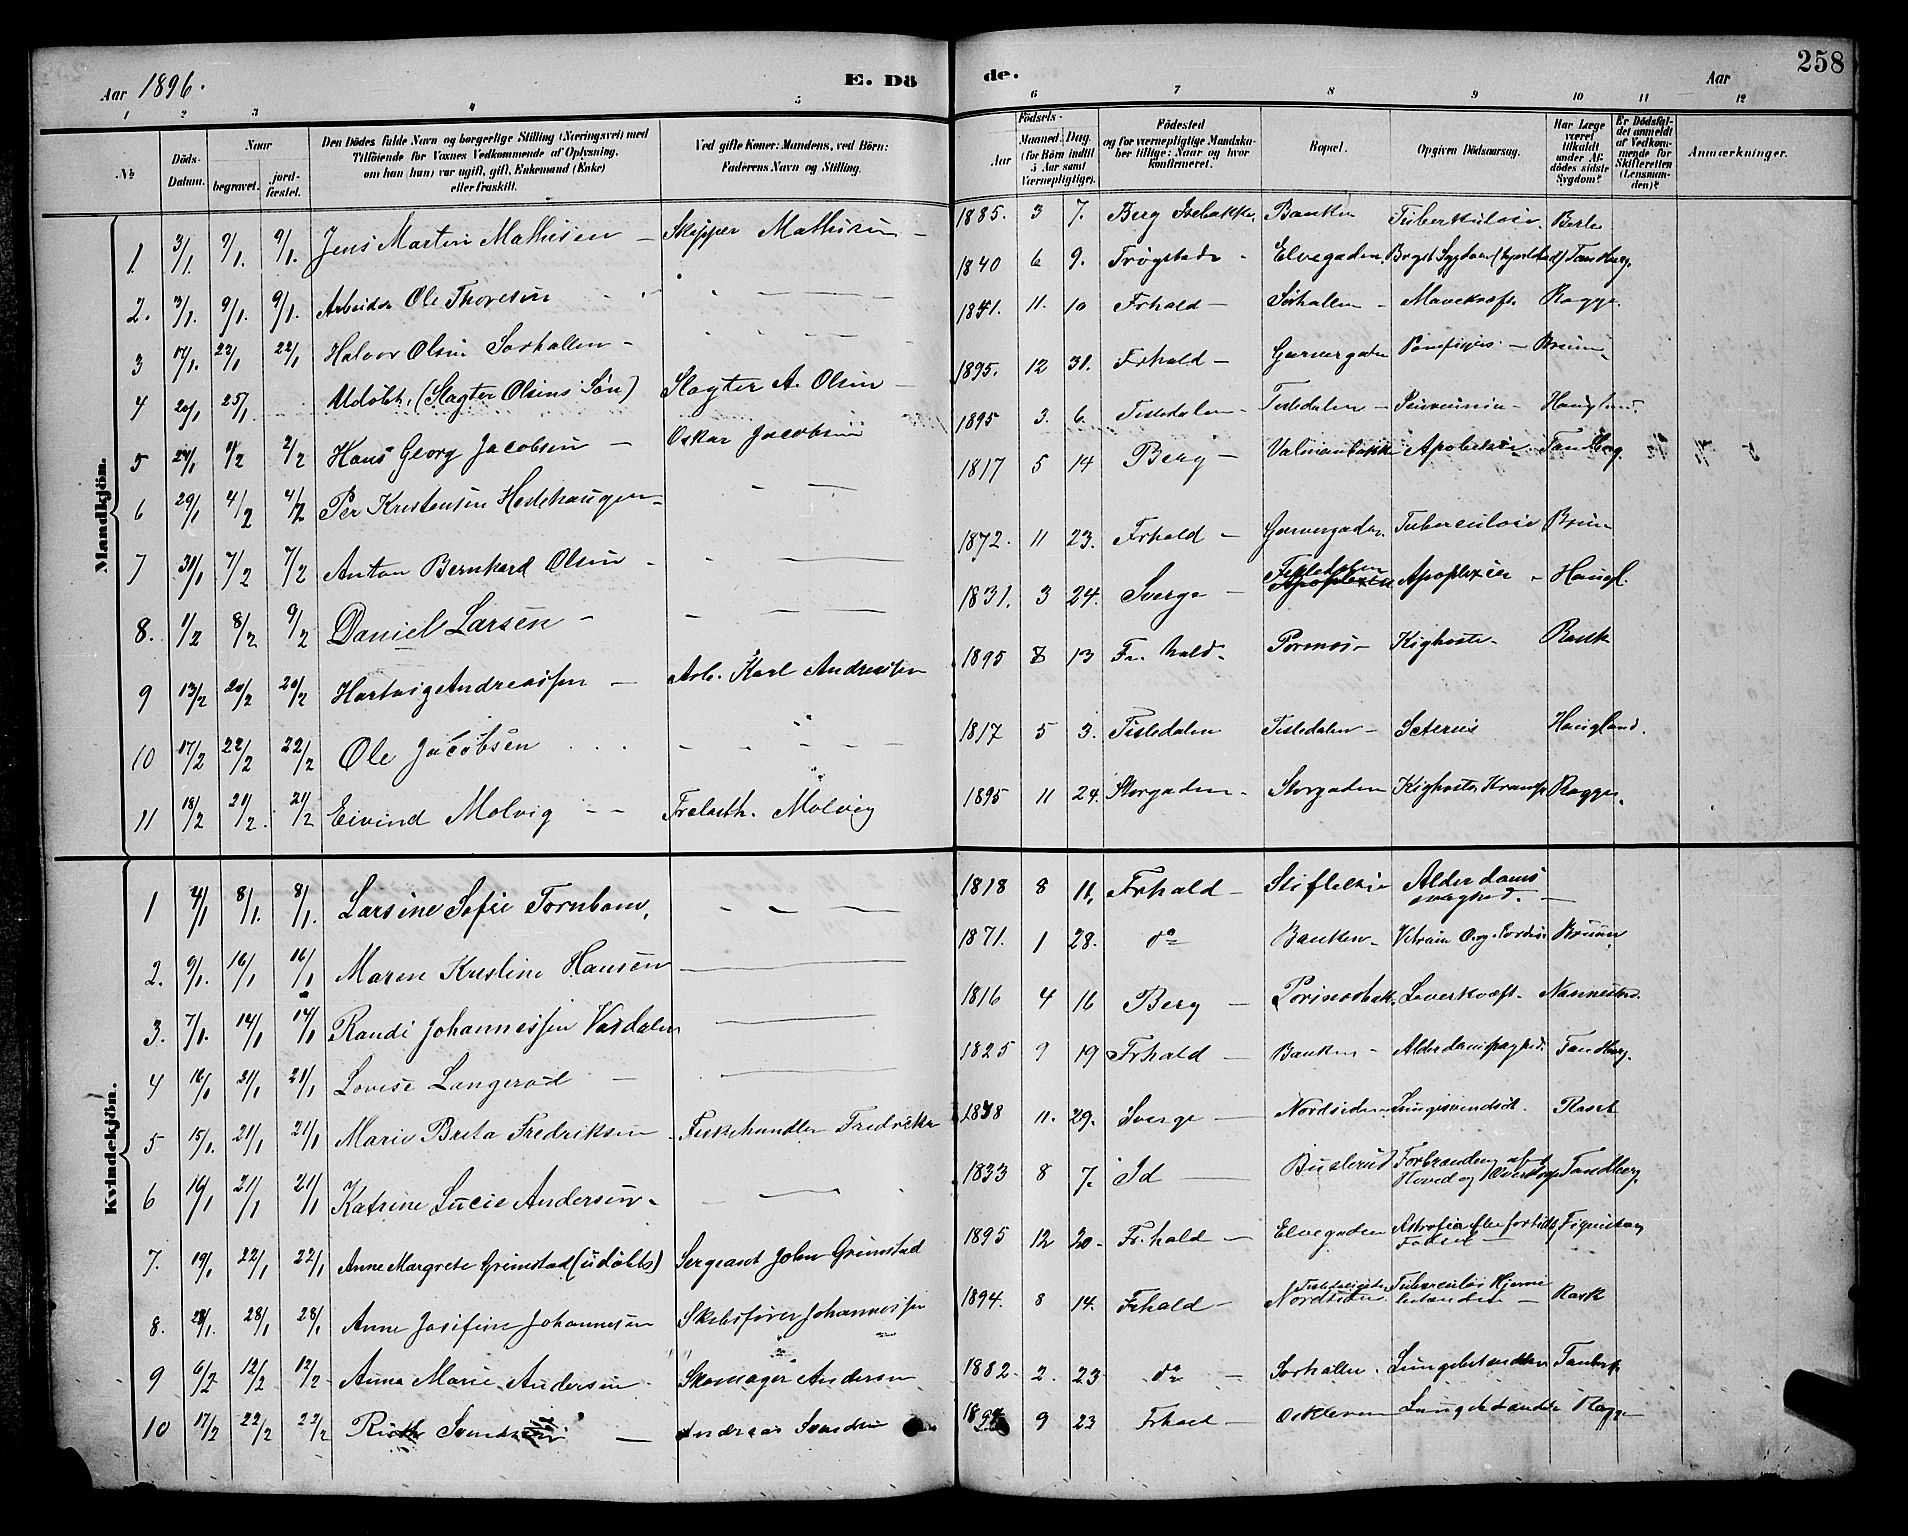 Aar 1896.
E. Dö
de.
Aar
258
1 2 3 4 5 6 7 8 9 10 11 12
№
Döds-Datum.
Naar
begravet.
jord-fæstet.
Den Dödes fulde Navn og borgerlige Stilling (Næringsvei) med
Tilföiende for Voxnes Vedkommende af Oplysning,
om han (hun) var ugift, gift, Enkemand (Enke)
eller fraskilt.
Ved gifte Koner: Mandens, ved Börn:
Faderens Navn og Stilling.
Födsels-
Aar
Maaned, Dag.
(for Börn indtil
5 Aar samt
Værnepligtige).
Födested
og for værnepligtige Mandska-
ber tillige: Naar og hvor
konfirmeret.
Bopæl.
Opgiven Dödsaarsag.
Har Læge
været
tilkaldt
under Af-
dödes sidste
Sygdom?
Er Dödsfal-
det anmeldt
af Vedkom-
mende for
Skifteretten
(Lensman-
den)?
Anmærkninger.
Mandkjön.
1. 3/1 9/1. 9/1. Jens Martin Mathisen — Skipper Mathisen — 1885. 3 7. Berg Isebakke. Banken Tuberkulose. Berle
2. 3/1. 9/1. 9/1. Arbeider Ole Thoresen 1840 6 9. Trøgstad - Elvegaden. Bryst Sygdom Tandberg.
3 17/1. 22/1 22/1 Halvor Olsen Sorhallen - 1841. 11. 10 Frhald — Sorhallen - Mavekræft Ragge.
4 20/1 25/1 Udøbt, (Slagter Olsens Søn) Slagter A. Olsen — 1895. 12 31. Frhald — Garvergaden — Bruun
5 24/1 2/2 Hans Georg Jacobsen — Oskar Jacobsen 1895 3. 6. Tistedalen - Tistedalen — Haugland.
6 29/1 4/2 4/2 Per Kristensen 1817 5 14 Berg — Tandberg.
7 31/1 7/2 7/2 Anton Bernhard Olsen - 1872. 11 23. Frhald — Garvergaden. Tuberculose Bruun
8. 1/2 8/2 9/2 Daniel Larsen - 1831. 3 24. Sverge — Tistedalen Apoplexien Apoplexier - Haugl.
9 13/2 20/2 20/2 Hartvig Andreassen — Arb. Karl Andreassen 1895 8 13 Fr. hald. Pormos - Kighoste - Rask
10 17/2 22/2 22/2 Ole Jacobsen 1817 5 3. Tistedalen Tistedalen — Icterus Haugland.
11 18/2 21/2. 21/2 Eivind Molvig - - Molvig 1895 11 24. Storgaden - Storgaden Kighoste, Krampe Ragge.
Kvindekjön.
1 4/1 8/1. 8/1. Larsine Sofie Tornbom, 1818 8 11, Frhald — Stiftelse Alderdoms
svaghed. —
2. 9/1. 16/1 16/1 Maren Kristine Hansen 1871. 1 28. do Banken - Bruun
3. 7/1. 14/1 14/1 Randi Johannessen Vardalen 1816 4 16 Berg — Leverkræft. Nannestad.
4 16/1 21/1 21/1 Lovise Langerød — 1825 9 19 Frhald — Banken - Alderdomssvaghed. Tandberg.
5 15/1. 21/1 21/1 Marie Brita Fredriksen Fiskehandler Fredriks 11. 29. Sverge — Nordsiden.
6 16/1 21/1 21/1 Katrine Lucie Andersen - 1833 8 7. Id — Buslerud Forbrænding af
Hoved og Tandberg.
7. 19/1 22/1 22/1 Anne Margrete Grimstad (udøbt) Sergeant John Grimstad 1895 12 20 - Fr. hald — Elvegaden Atrofia
Fødsel —
8. 28/1 28/1 Anne Josefine Johannesen Skibsfører Johannessen 1894. 8 14. Frhald — Tistedalsgaden Nordsiden. Tuberculøs Hjerne
betændelse — Rask
9 6/2 12/2 12/2 Anna Marie Andersen Skomager Andersen 1882 - 2. 23 do — Sorhallen. Lungebetændelse
10 17/2 22/2 22/2 Ruth Svendsen — Andreas Svendsen 9 23 Frhald — Oskleven Lungebetændelse Ragge